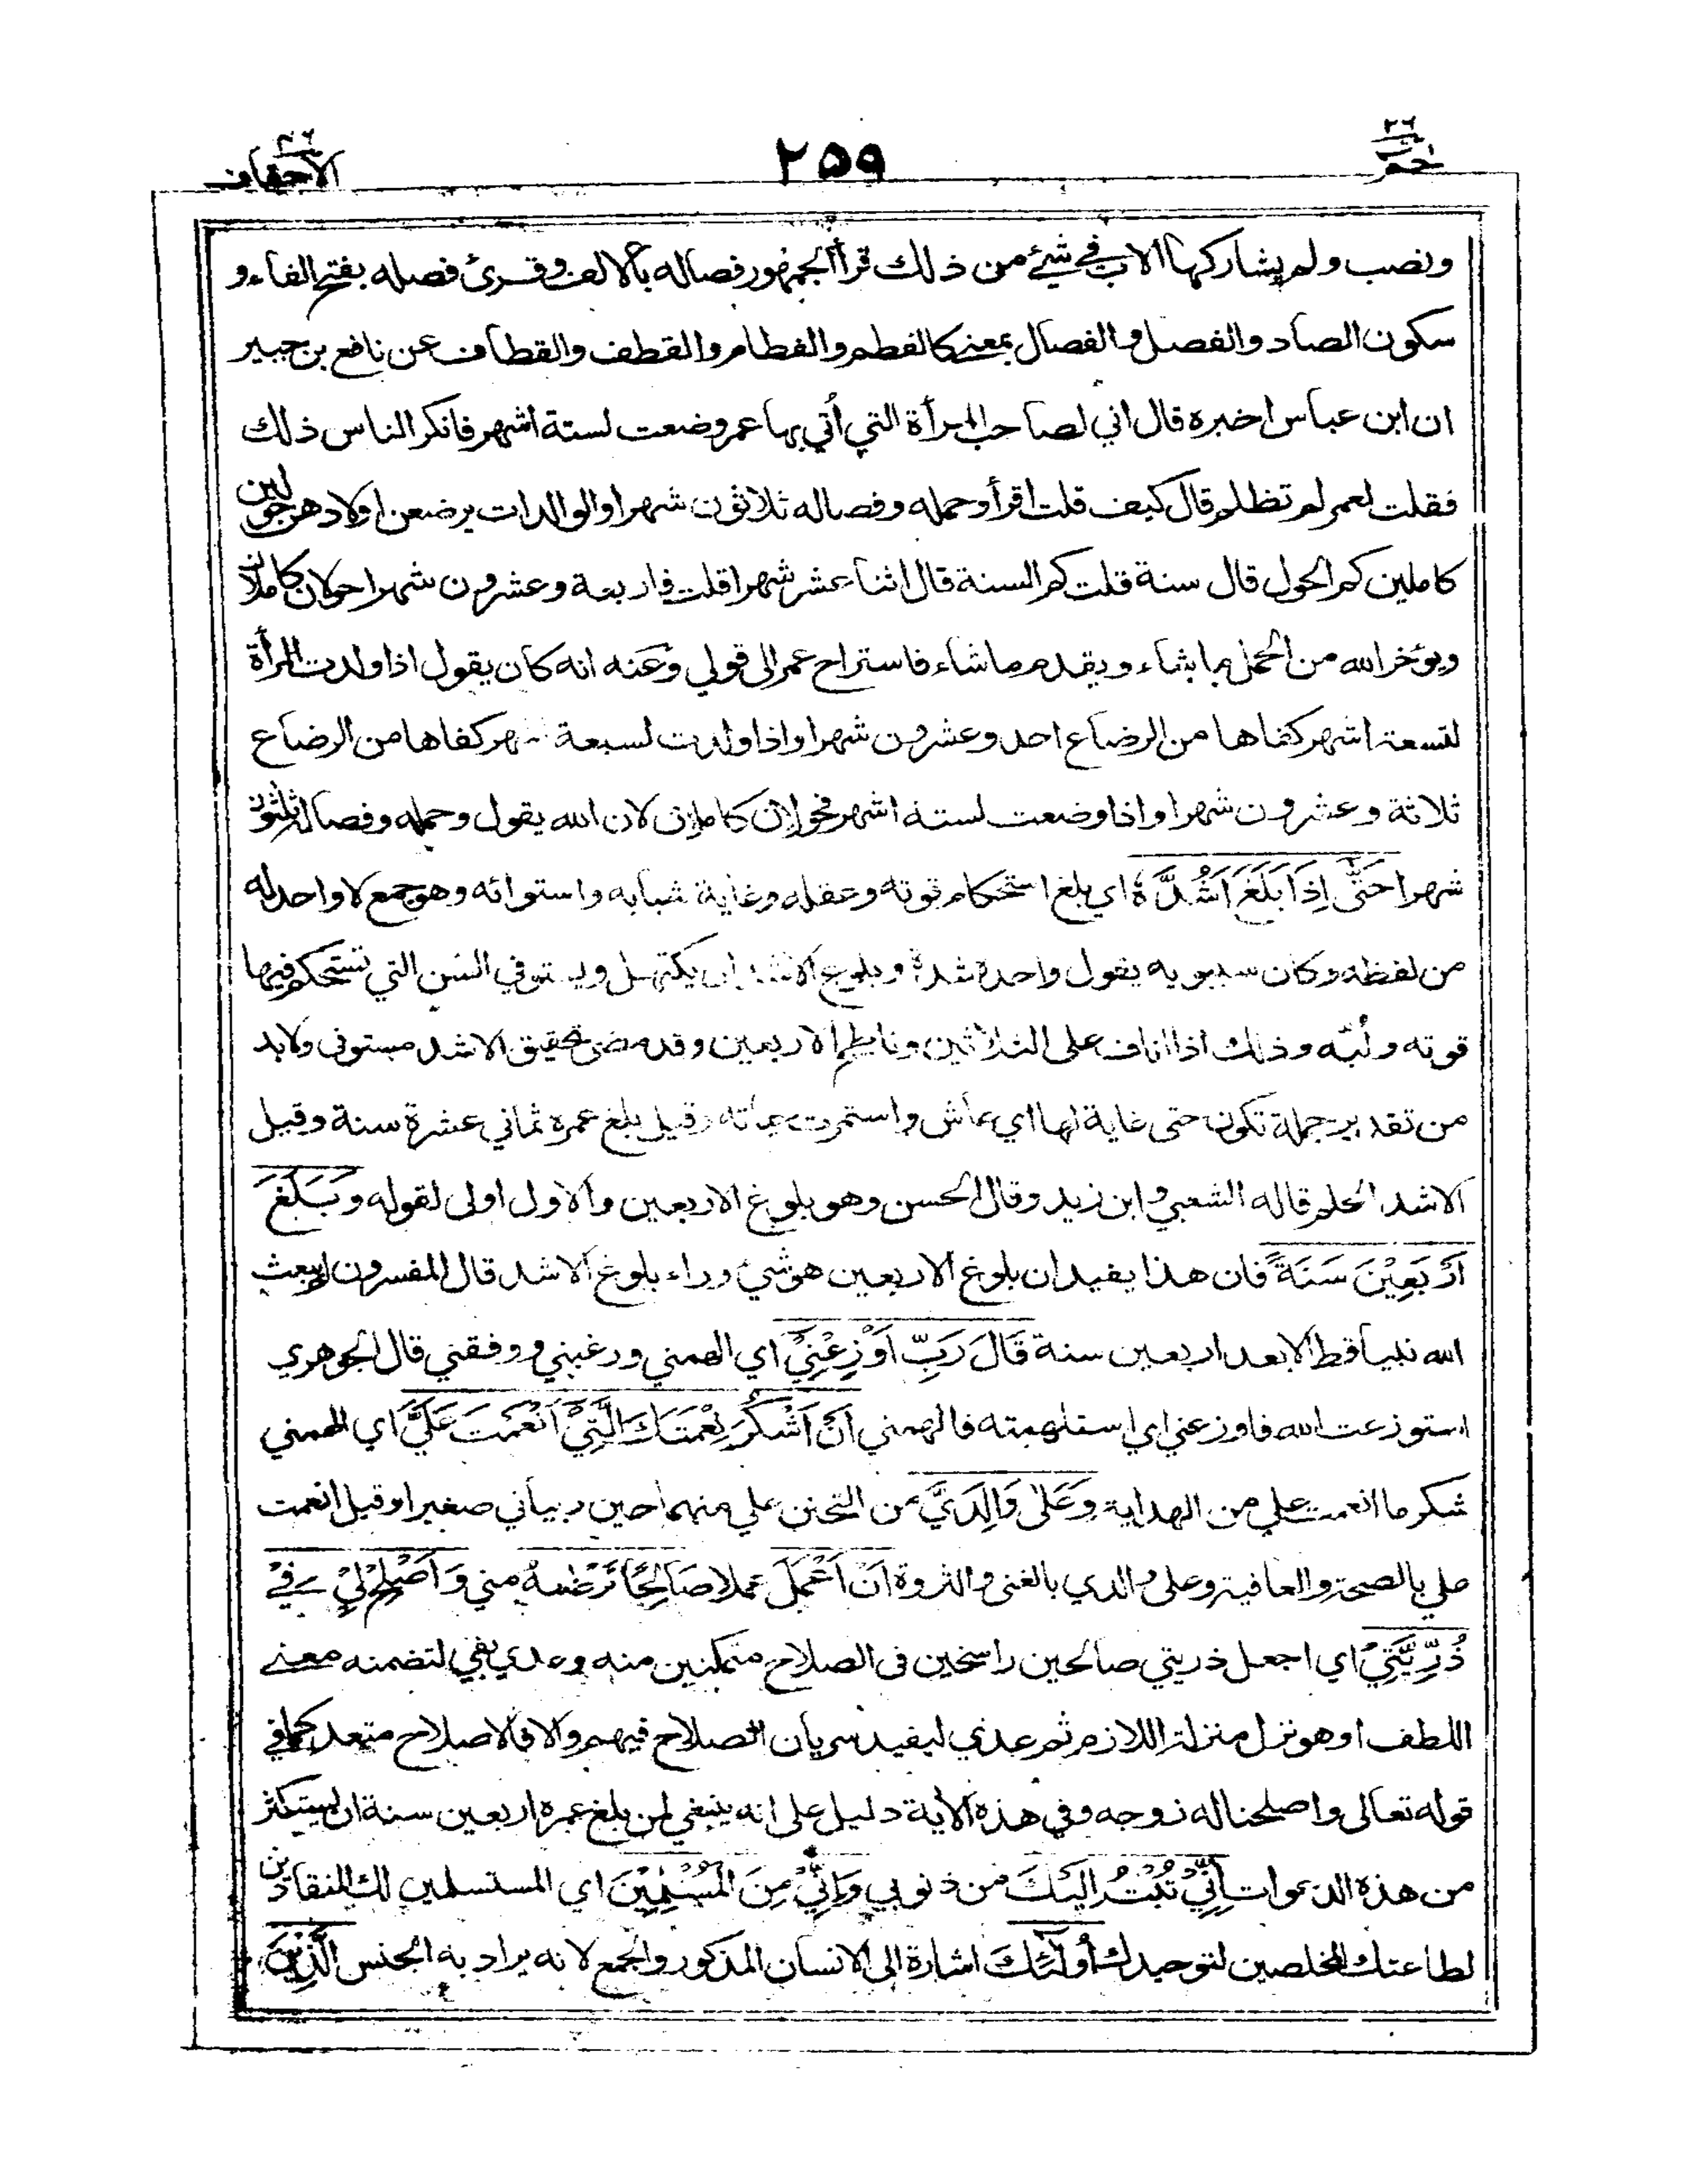 حم ٢٦
٢٥٩
الأحقاف ٤٦
ونصب ولم يشاركها الاب في شيء من ذلك قرأ الجمهور فصاله بالالف وقرئ فصله بفتح الفاء و
سكون الصاد والفصل والفصال بمعنى كالفطم والفطام والقطف والقطاف عن نافع بن جبير
ان ابن عباس اخبره قال اني لصاحب المرأة التي أتي بها عمر وضعت لستة اشهر فانكر الناس ذلك
فقلت لعمر لم تظلم قال كيف قلت اقرأ وحمله وفصاله ثلاثون شهرا والوالدات يرضعن اولادهن حولين
كاملين كم الحول قال سنة قلت كم السنة قال اثنا عشر شهرا قلت فاربعة وعشرون شهرا حولان كاملان
ويؤخر الله من الحمل ما يشاء ويقدم ما شاء فاستراح عمر الى قولي وعنه انه كان يقول اذا ولدت المرأة
لتسعة اشهر كفاها من الرضاع احد وعشرون شهرا واذا ولدت لسبعة اشهر كفاها من الرضاع
ثلاثة وعشرون شهرا واذا وضعت لستة اشهر فحولان كاملان لان الله يقول وحمله وفصاله ثلثون
شهرا حَتَّى إِذَا بَلَغَ اَشُدَّهُ اي بلغ استحكام قوته وعقله وغاية شبابه واستوائه وهو جمع لا واحد له
من لفظه وكان سيبويه يقول واحده شدة وبلوغ الاشد ان يكتهل ويستوفي السن التي تستحكم فيها
قوته ولُبّه وذلك اذا اناف على الثلاثين وناطح الاربعين وقد مضى تحقيق الاشد مستوفى ولابد
من تقدير جملة تكون حتى غاية لها اي عاش واستمرت حياته وقيل بلغ عمره ثماني عشرة سنة وقيل
الاشد الحلم قاله الشعبي وابن زيد وقال الحسن وهو بلوغ الاربعين والاول اولى لقوله وَبَلَغَ
اَرْبَعِيْنَ سَنَةً فان هذا يفيد ان بلوغ الاربعين هو شيء وراء بلوغ الاشد قال المفسرون لم يبعث
الله نبيا قط الا بعد اربعين سنة قَالَ رَبِّ اَوْزِعْنِيْ اي الهمني ورغبني ووفقني قال الجوهري
استوزعت الله فاوزعني اي استلهمته فالهمني اَنْ اَشْكُرَ نِعْمَتَكَ الَّتِيْ اَنْعَمْتَ عَلَيَّ اي الهمني
شكر ما انعمت علي من الهداية وَعَلىٰ وَالِدَيَّ من التحنن علي منهما حين ربياني صغيرا وقيل انعمت
علي بالصحة والعافية وعلى والدي بالغنى والثروة اَنْ اَعْمَلَ عملا صَالِحًا تَرْضٰهُ مني وَاَصْلِحْ لِيْ فِيْ
ذُرِّيَّتِيْ اي اجعل ذريتي صالحين راسخين في الصلاح متمكنين منه وعدي بفي لتضمنه معنى
اللطف او هو نزل منزلة اللازم ثم عدي ليفيد سريان الصلاح فيهم والا فالاصلاح متعد كما في
قوله تعالى واصلحنا له زوجه وفي هذه الأية دليل على انه ينبغي لمن بلغ عمره اربعين سنة ان يستكثر
من هذه الدعوات اِنِّيْ تُبْتُ اِلَيْكَ من ذنوبي وَاِنِّيْ مِنَ الْمُسْلِمِيْنَ اي المستسلمين لك المنقادين
لطاعتك المخلصين لتوحيدك أُولٰئِكَ اشارة الى الانسان المذكور والجمع لانه يراد به الجنس الَّذِيْنَ